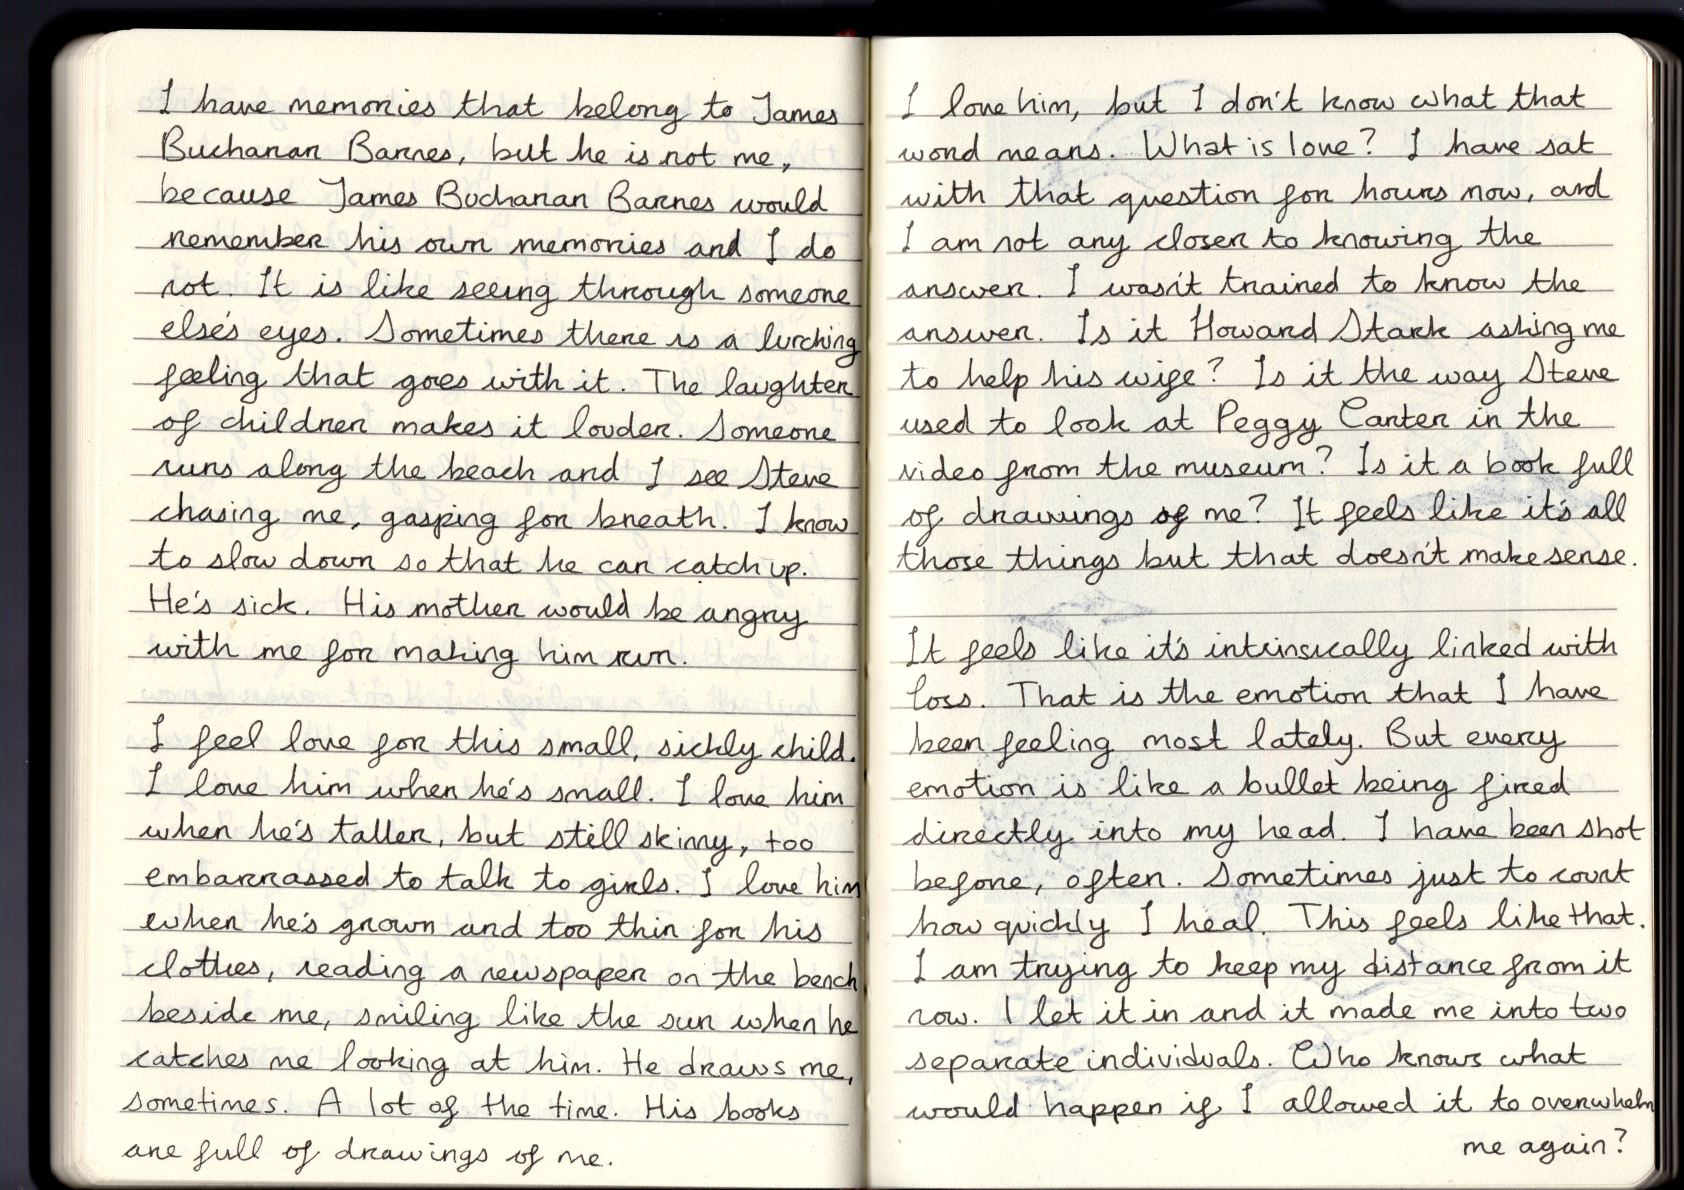 I have memories that belong to James
Buchanan Barnes, but he is not me,
because James Buchanan Barnes would
remember his own memories and I do
not. It is like seeing through someone
else's eyes. Sometimes there is a lurching
feeling that goes with it. The laughter
of children makes it louder. Someone
runs along the beach and I see Steve
chasing me, gasping for breath. I know
to slow down so that he can catch up.
He's sick. His mother would be angry
with me for making him run.
I feel love for this small, sickly child.
I love him when he's small. I love him
when he's taller, but still skinny, too
embarrassed to talk to girls. I love him
when he's grown and too thin for his
clothes, reading a newspaper on the bench
beside me, smiling like the sun when he
catches me looking at him. He draws me,
sometimes. A lot of the time. His books
are full of drawings of me.
I love him, but I don't know what that
word means. What is love? I have sat
with that question for hours now, and
I am not any closer to knowing the
answer. I wasn't trained to know the
answer. Is it Howard Stark asking me
to help his wife? Is it the way Steve
used to look at Peggy Carter in the
video from the museum? Is it a book full
of drawings of me? It feels like it's all
those things but that doesn't make sense.
It feels like it's intrinsically linked with
loss. That is the emotion that I have
been feeling most lately. But every
emotion is like a bullet being fired
directly into my head. I have been shot
before, often. Sometimes just to count
how quickly I heal. This feels like that.
I am trying to keep my distance from it
now. I let it in and it made me into two
separate individuals. Who knows what
would happen if I allowed it to overwhelm
me again?